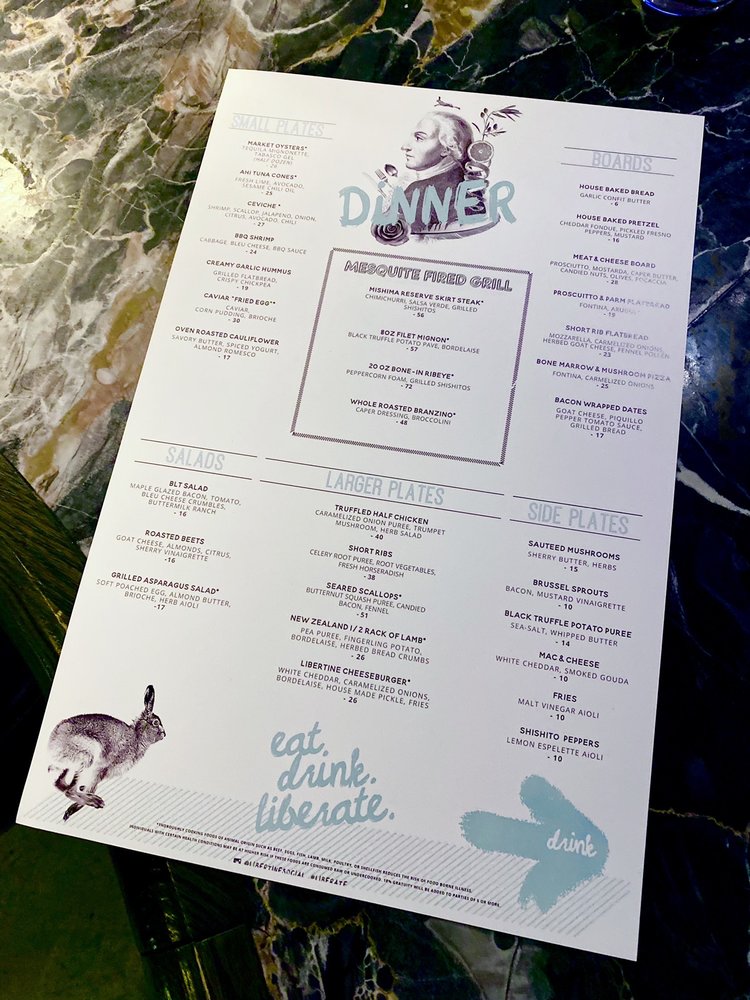 SMALL PLATES
MARKET OYSTERS*
TEQUILA MIGNONETTE,
TABASCO GEL
(HALF DOZEN)
- 26
AHI TUNA CONES*
FRESH LIME, AVOCADO,
SESAME CHILI OIL
- 25
CEVICHE *
SHRIMP, SCALLOP, JALAPENO, ONION,
CITRUS, AVOCADO, CHILI
- 27
BBQ SHRIMP
CABBAGE, BLEU CHEESE, BBQ SAUCE
- 24
CREAMY GARLIC HUMMUS
GRILLED FLATBREAD,
CRISPY CHICKPEA
- 19
CAVIAR "FRIED EGG"*
CAVIAR,
CORN PUDDING, BRIOCHE
- 30
OVEN ROASTED CAULIFLOWER
SAVORY BUTTER, SPICED YOGURT,
ALMOND ROMESCO
- 17
DINNER
MESQUITE FIRED GRILL
MISHIMA RESERVE SKIRT STEAK*
CHIMICHURRI, SALSA VERDE, GRILLED
SHISHITOS
- 56
8OZ FILET MIGNON*
BLACK TRUFFLE POTATO PAVE, BORDELAISE
- 57
20 OZ BONE-IN RIBEYE*
PEPPERCORN FOAM, GRILLED SHISHITOS
- 72
WHOLE ROASTED BRANZINO*
CAPER DRESSING, BROCCOLINI
- 48
BOARDS
HOUSE BAKED BREAD
GARLIC CONFIT BUTTER
- 6
HOUSE BAKED PRETZEL
CHEDDAR FONDUE, PICKLED FRESNO
PEPPERS, MUSTARD
- 16
MEAT & CHEESE BOARD
PROSCIUTTO, MOSTARDA, CAPER BUTTER,
CANDIED NUTS, OLIVES, FOCACCIA
- 28
PROSCUITTO & PARM FLATBREAD
FONTINA, ARUGULA
- 19
SHORT RIB FLATBREAD
MOZZARELLA, CARMELIZED ONIONS,
HERBED GOAT CHEESE, FENNEL POLLEN
- 23
BONE MARROW & MUSHROOM PIZZA
FONTINA, CARMELIZED ONIONS
- 25
BACON WRAPPED DATES
GOAT CHEESE, PIQUILLO
PEPPER TOMATO SAUCE,
GRILLED BREAD
- 17
SALADS
BLT SALAD
MAPLE GLAZED BACON, TOMATO,
BLEU CHEESE CRUMBLES,
BUTTERMILK RANCH
- 16
ROASTED BEETS
GOAT CHEESE, ALMONDS, CITRUS,
SHERRY VINAIGRETTE
-16
GRILLED ASPARAGUS SALAD*
SOFT POACHED EGG, ALMOND BUTTER,
BRIOCHE, HERB AIOLI
-17
LARGER PLATES
TRUFFLED HALF CHICKEN
CARAMELIZED ONION PUREE, TRUMPET
MUSHROOM, HERB SALAD
- 40
SHORT RIBS
CELERY ROOT PUREE, ROOT VEGETABLES,
FRESH HORSERADISH
- 38
SEARED SCALLOPS*
BUTTERNUT SQUASH PUREE, CANDIED
BACON, FENNEL
- 51
NEW ZEALAND 1/2 RACK OF LAMB*
PEA PUREE, FINGERLING POTATO,
BORDELAISE, HERBED BREAD CRUMBS
- 26
LIBERTINE CHEESEBURGER*
WHITE CHEDDAR, CARAMELIZED ONIONS,
BORDELAISE, HOUSE MADE PICKLE, FRIES
- 26
SIDE PLATES
SAUTEED MUSHROOMS
SHERRY BUTTER, HERBS
- 15
BRUSSEL SPROUTS
BACON, MUSTARD VINAIGRETTE
- 10
BLACK TRUFFLE POTATO PUREE
SEA-SALT, WHIPPED BUTTER
- 14
MAC & CHEESE
WHITE CHEDDAR, SMOKED GOUDA
- 10
FRIES
MALT VINEGAR AIOLI
- 10
SHISHITO PEPPERS
LEMON ESPELETTE AIOLI
- 10
eat.
drink.
liberate.
drink
*THOROUGHLY COOKING FOODS OF ANIMAL ORIGIN SUCH AS BEEF, EGGS, FISH, LAMB, MILK, POULTRY, OR SHELLFISH REDUCES THE RISK OF FOOD BORNE ILLNESS.
INDIVIDUALS WITH CERTAIN HEALTH CONDITIONS MAY BE AT HIGHER RISK IF THESE FOODS ARE CONSUMED RAW OR UNDERCOOKED. 18% GRATUITY WILL BE ADDED TO PARTIES OF 6 OR MORE.
@LIBERTINESOCIAL #LIBERATE